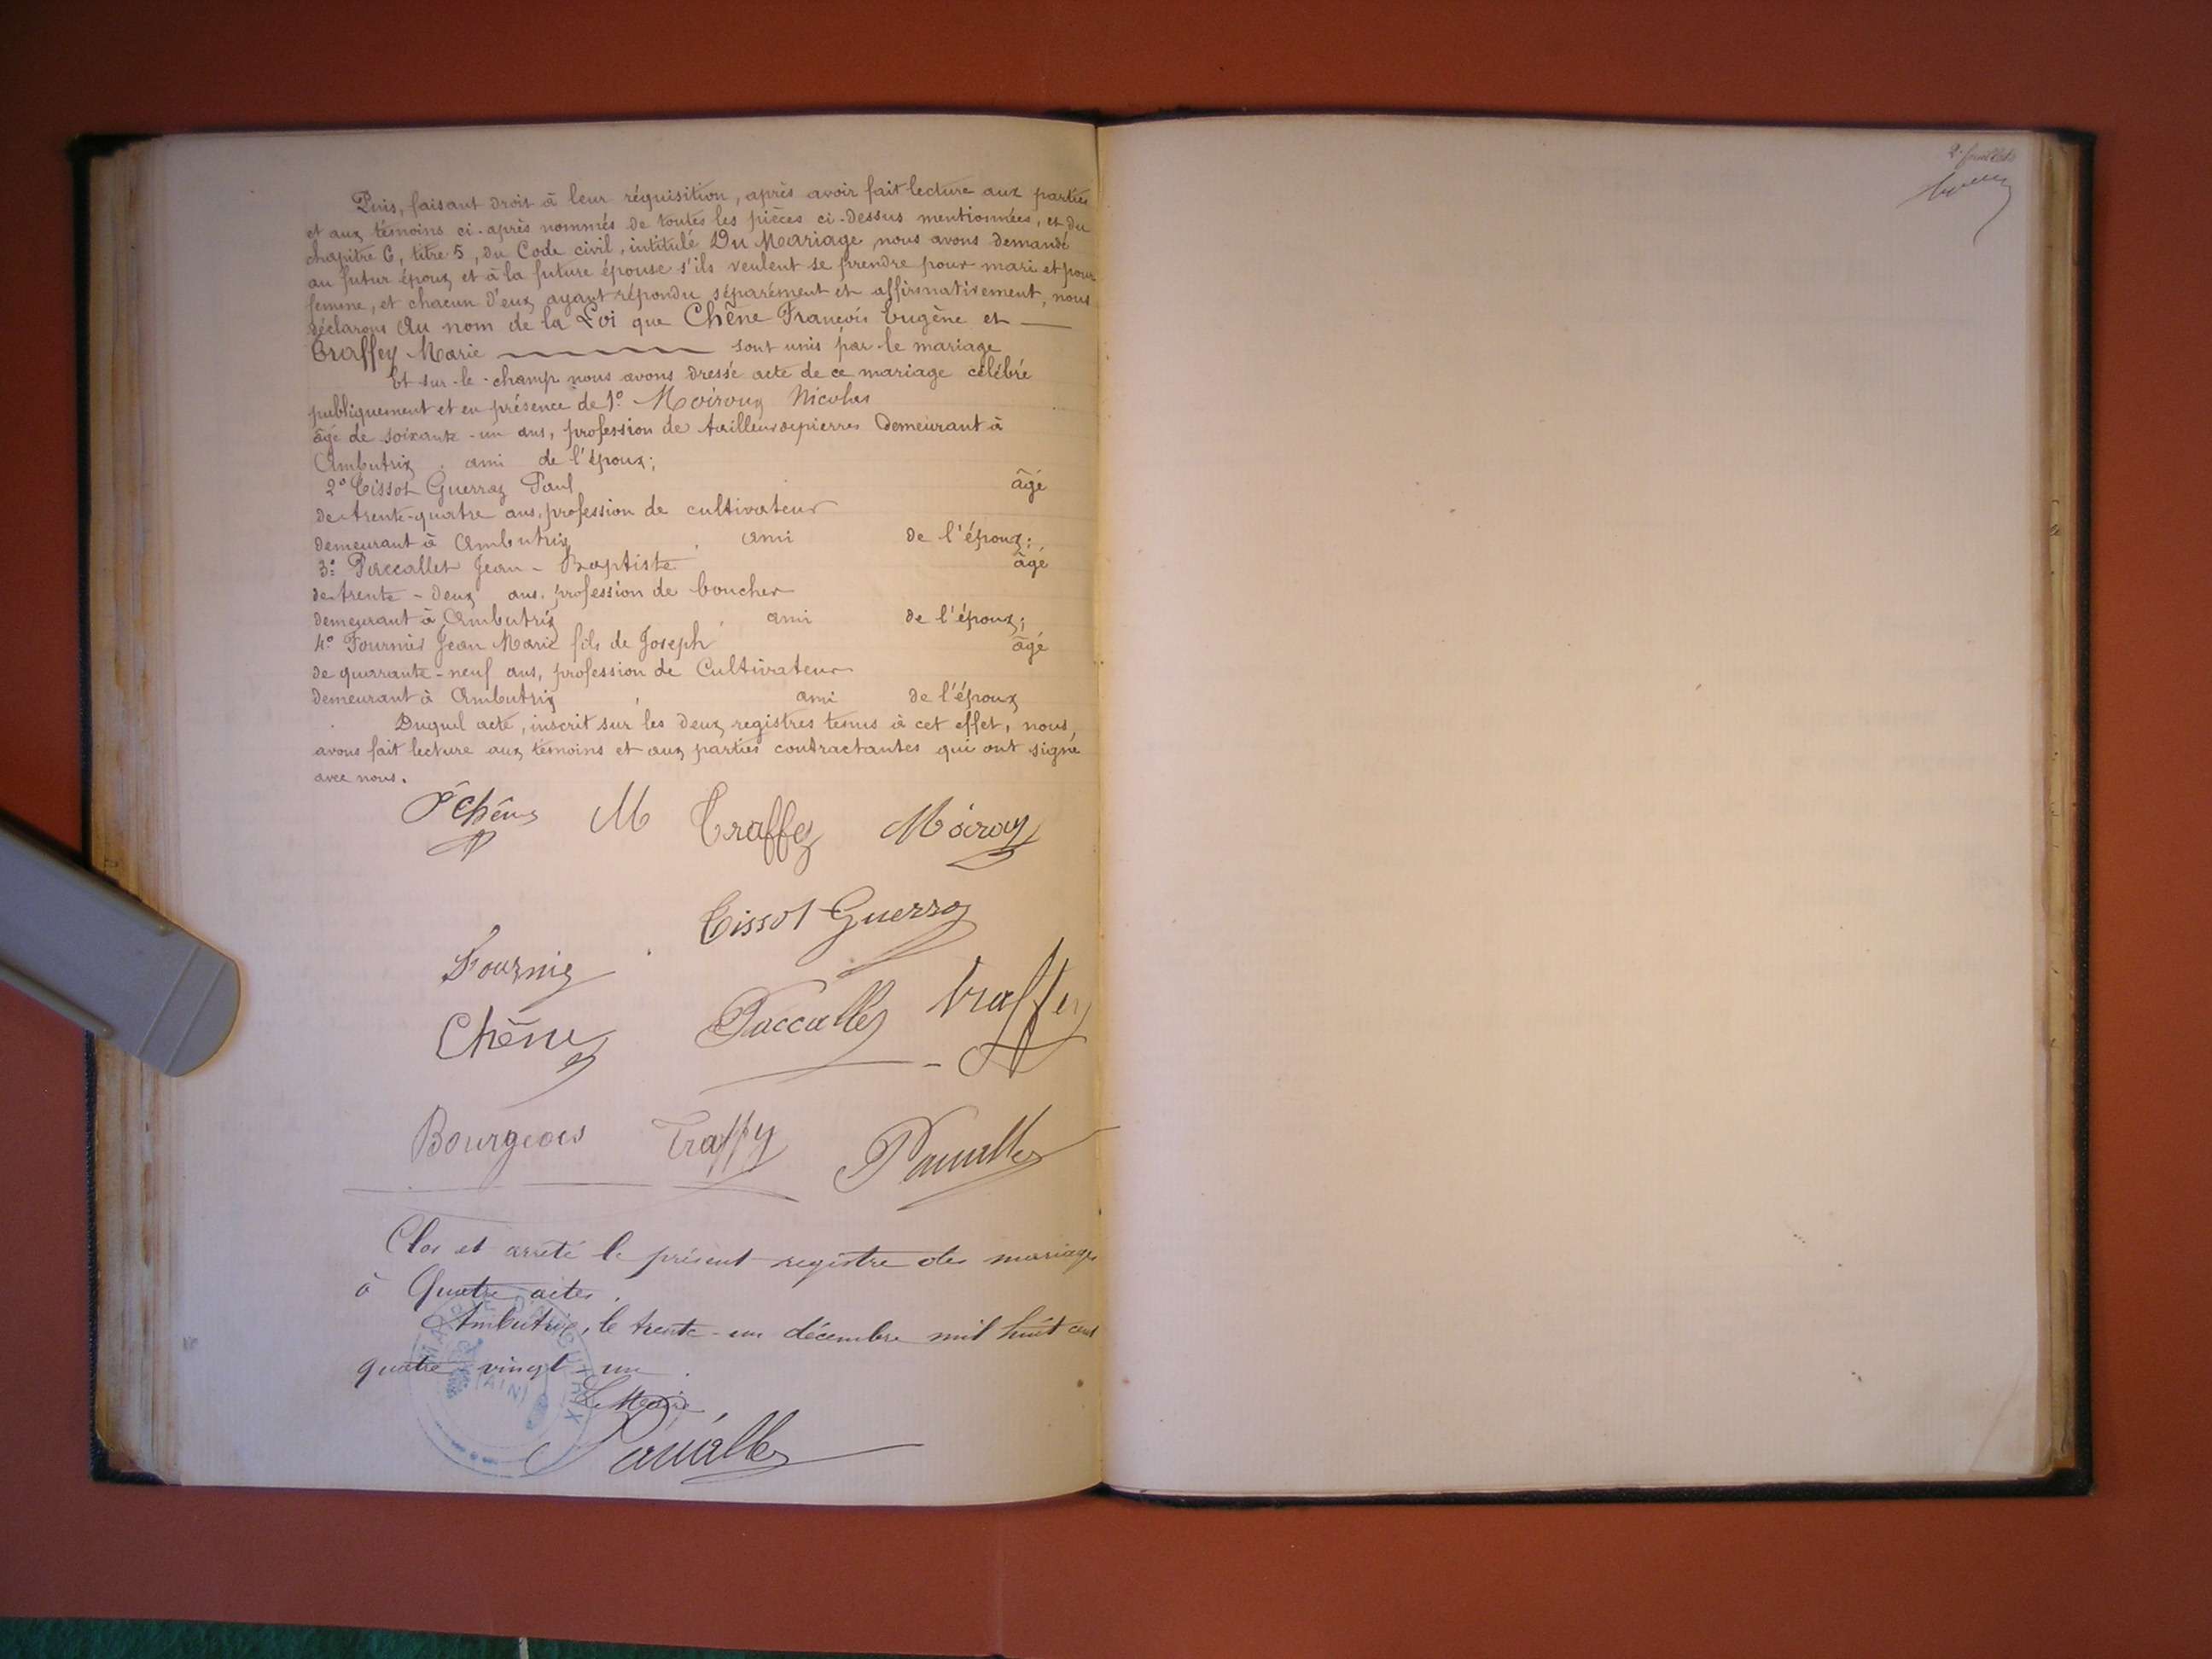 Puis, faisant droit à leur réquisition, après avoir fait lecture aux parties
et aux témoins ci-après nommés de toutes les pièces ci-dessus mentionnées, et du
chapitre 6, titre 5, du Code civil, intitulé Du Mariage, nous avons demandé
au futur époux et à la future épouse s'ils veulent se prendre pour mari et pour
femme, et chacun d'eux ayant répondu séparément et affirmativement, nous
déclarons Au nom de la Loi que Chêne François Eugène et
Traffey Marie sont unis par le mariage
Et sur-le-champ nous avons dressé acte de ce mariage célébré
publiquement et en présence de 1º Moiroux Nicolas
âgé de soixante-un ans, profession de tailleur de pierres demeurant à
Ambutrix, ami de l'époux;
2º Tissot Guerraz Paul âgé
de trente-quatre ans, profession de cultivateur
demeurant à Ambutrix, ami de l'époux;
3º Paccallet Jean-Baptiste âgé
de trente-deux ans, profession de boucher
demeurant à Ambutrix, ami de l'époux;
4º Fournier Jean Marie fils de Joseph âgé
de quarante-neuf ans, profession de Cultivateur
demeurant à Ambutrix, ami de l'époux
Duquel acte, inscrit sur les deux registres tenus à cet effet, nous
avons fait lecture aux témoins et aux parties contractantes qui ont signé
avec nous.
Chêne M Traffey Moiroux
Tissot Guerraz
Fournier
Chêne Paccallet Traffey
Bourgeois Traffey
Clos et arrêté le présent registre des mariages
à Quatre actes.
Ambutrix, le trente-un décembre mil huit cent
quatre-vingt-un.
Le Maire,
(AIN)